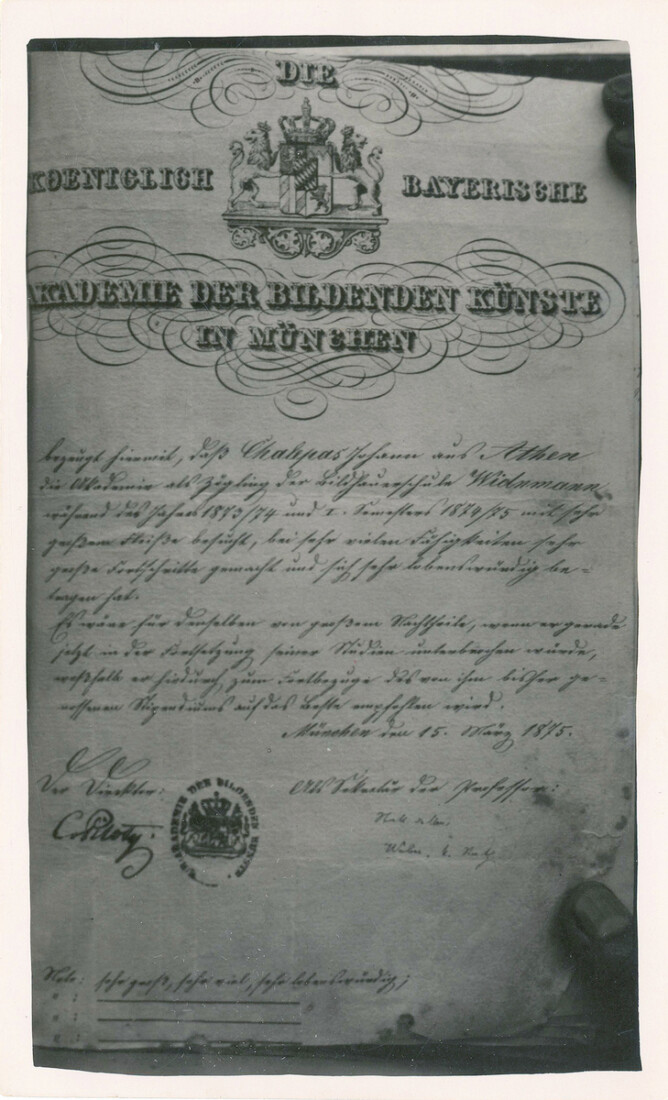 DIE
KOENIGLICH BAYERISCHE
AKADEMIE DER BILDENDEN KÜNSTE
IN MÜNCHEN
bezeugt hiermit, daß Chalepas Johann aus Athen
die Akademie als Zögling der Bildhauerschule Widnmann
während des Jahres 1873/74 und I. Semesters 1874/75 mit sehr
großem Fleiße besucht, bei sehr vielen Fähigkeiten sehr
große Fortschritte gemacht und sich sehr lobenswürdig be-
tragen hat.
Es wäre für denselben von großem Nachtheile, wenn er gerade
jetzt in der Fortsetzung seiner Studien unterbrochen würde,
weßhalb er hiedurch zum Fortbezuge des von ihm bisher ge-
nossenen Stipendiums auf das Beste empfohlen wird.
München den 15. März 1875.
Der Direktor: Als Sekretär der Professor:
C. Piloty.
AKADEMIE DER BILDENDEN KÜNSTE
Note: sehr groß, sehr viel, sehr lobenswürdig;
" :
" :
" :